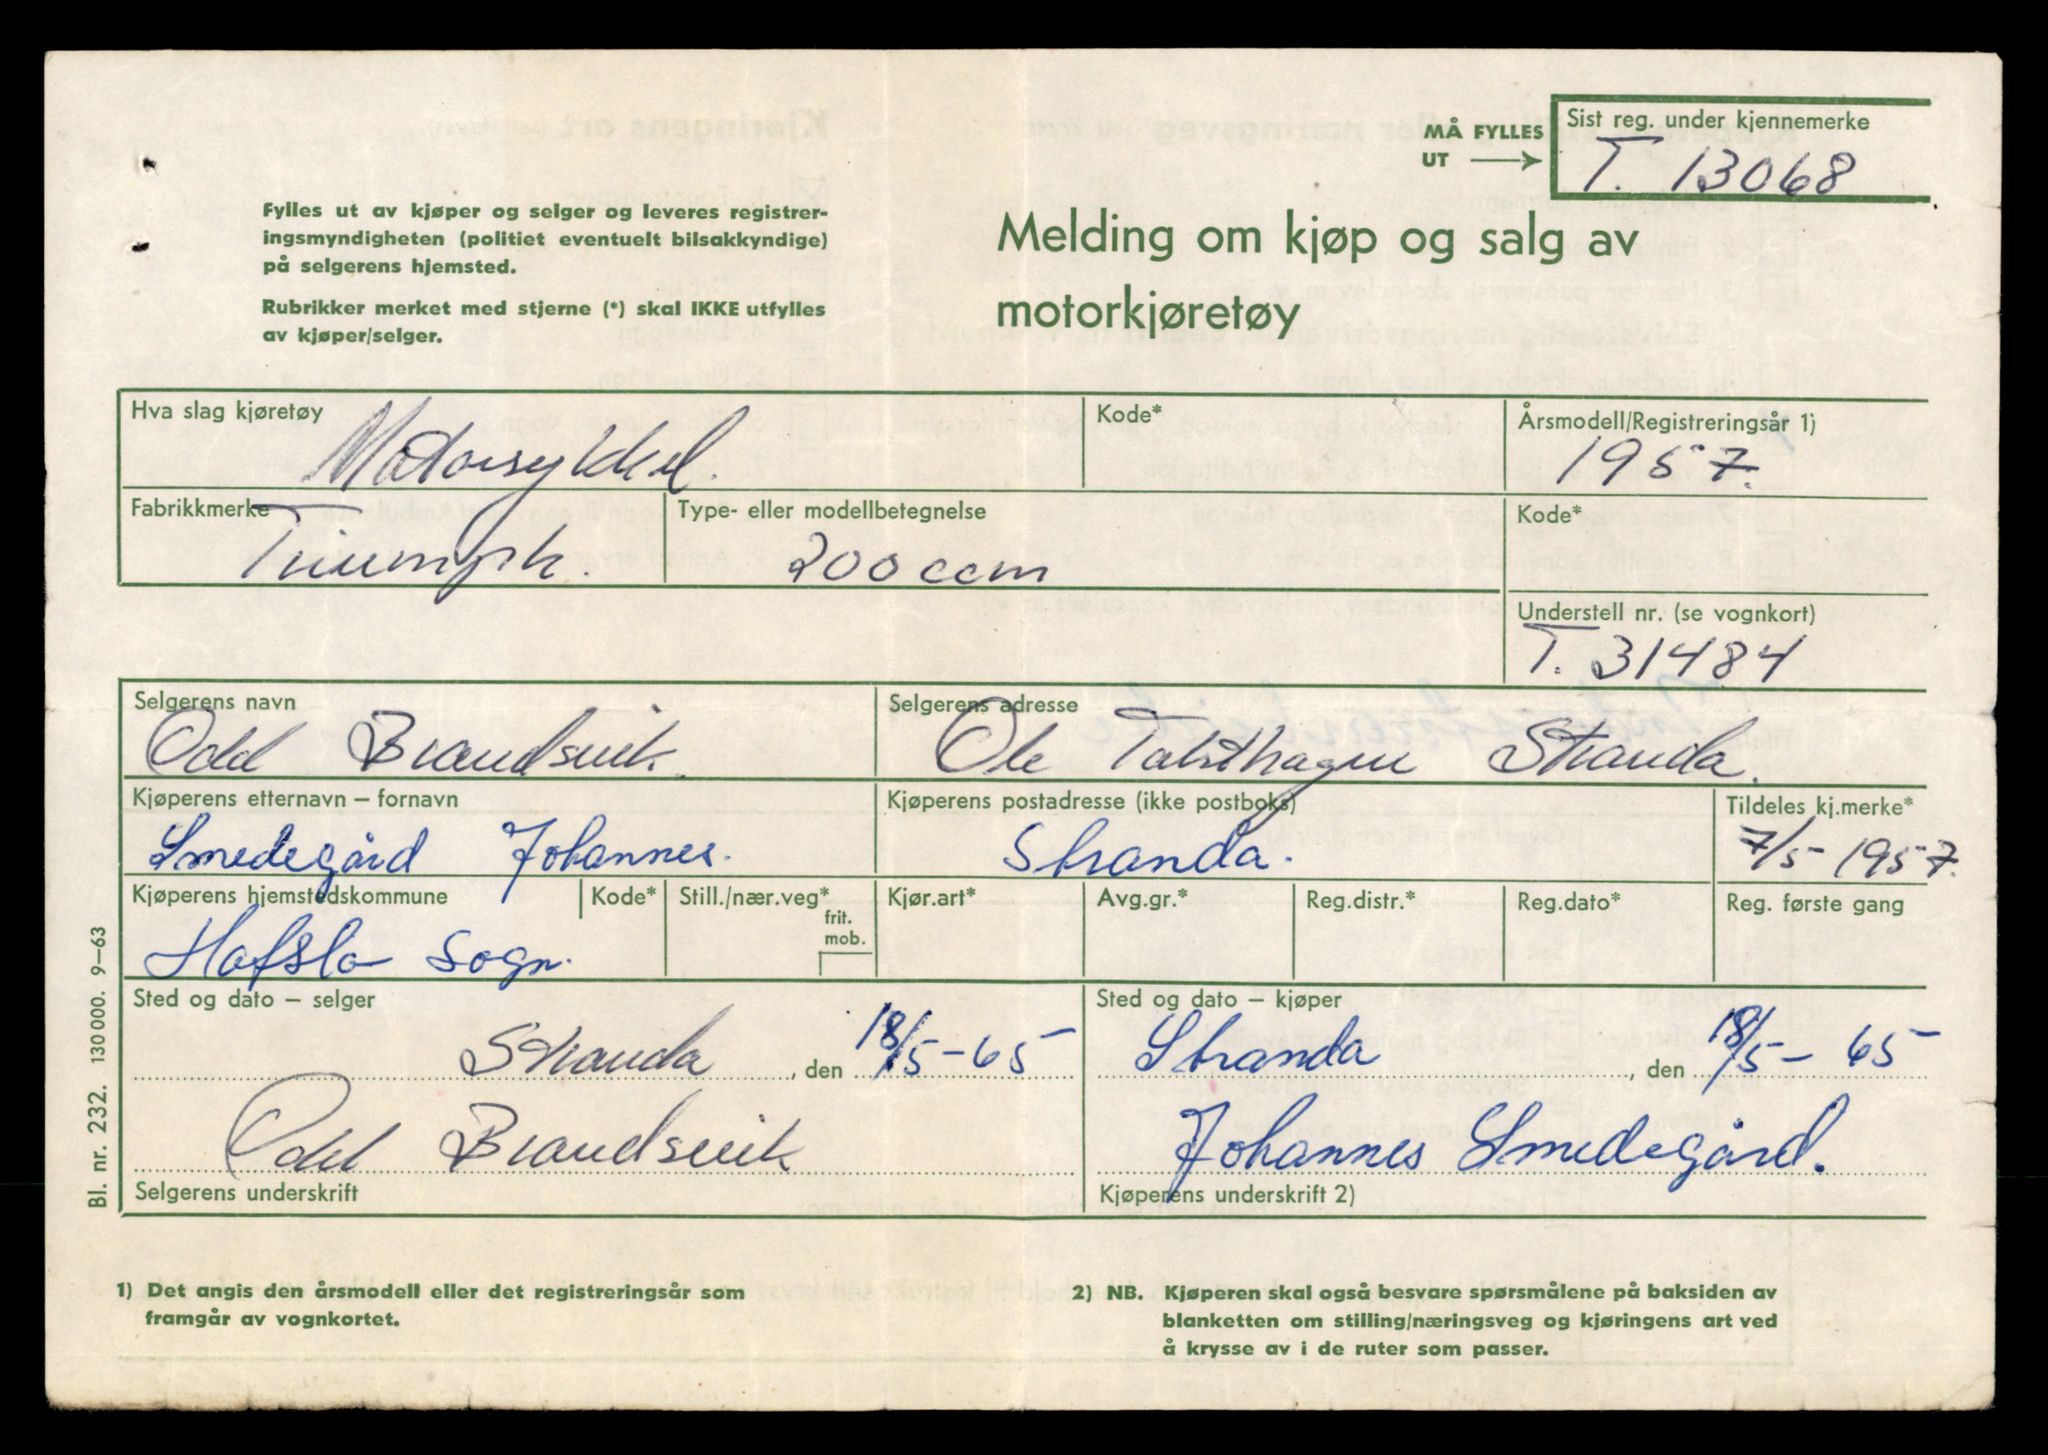 MÅ FYLLES
UT
Sist reg. under kjennemerke
T. 13068
Fylles ut av kjøper og selger og leveres registrer-
ingsmyndigheten (politiet eventuelt bilsakkyndige)
på selgerens hjemsted.
Rubrikker merket med stjerne (*) skal IKKE utfylles
av kjøper/selger.
Melding om kjøp og salg av
motorkjøretøy
Hva slag kjøretøy
Motorsykkel.
Kode*
Årsmodell/Registreringsår 1)
1957.
Fabrikkmerke
Triumph.
Type- eller modellbetegnelse
200 ccm
Kode*
Understell nr. (se vognkort)
T. 31484
Selgerens navn
Odd Brandsvik.
Selgerens adresse
Ole Stranda.
Kjøperens etternavn – fornavn
Smedegård Johannes.
Kjøperens postadresse (ikke postboks)
Stranda.
Tildeles kj.merke*
7/5 1957.
Kjøperens hjemstedskommune
Hafslo Sogn.
Kode*
Still./nær.veg*
frit.
mob.
Kjør.art*
Avg.gr.*
Reg.distr.*
Reg.dato*
Reg. første gang
Sted og dato – selger
Stranda, den 18/5-65
Odd Brandsvik
Selgerens underskrift
Sted og dato – kjøper
Stranda, den 18/5-65
Johannes Smedegård.
Kjøperens underskrift 2)
Bl. nr. 232. 130 000. 9–63
1) Det angis den årsmodell eller det registreringsår som
framgår av vognkortet.
2) NB. Kjøperen skal også besvare spørsmålene på baksiden av
blanketten om stilling/næringsveg og kjøringens art ved
å krysse av i de ruter som passer.